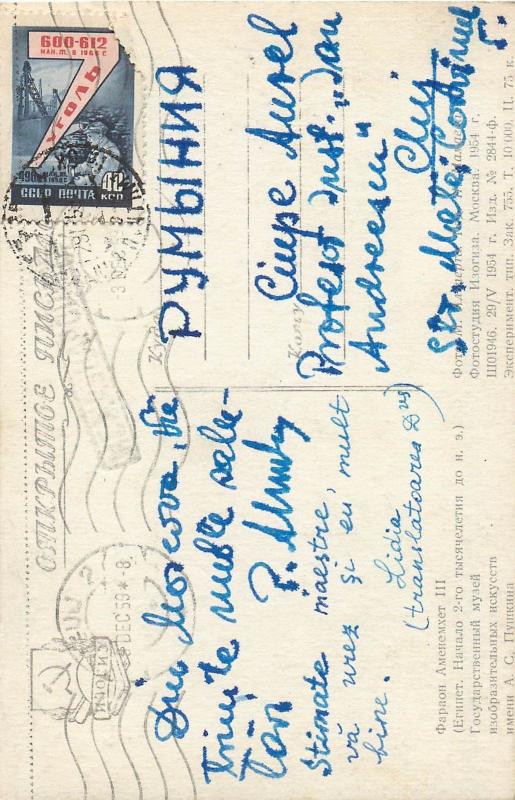 600-612
МЛН. Т. В 1965 Г.
УГОЛЬ
СССР ПОЧТА
КОП
ОТКРЫТОЕ ПИСЬМО
РУМЫНИЯ
Куда
Ciupe Aurel
Profesor Inst. "Ion
Andreescu"
Cluj
Str. Matei Corvinul
5.
Din Moscova, vă
trimite multe salu-
tări
Stimate maestre,
și eu, mult
vă urez
bine.
Lidia
(translatoarea Dvs)
DEC 59 * 8.
ИЗОГИЗ
Фараон Аменемхет III
(Египет. Начало 2-го тысячелетия до н. э.)
Государственный музей
изобразительных искусств
имени А. С. Пушкина
Фотостудия Изогиза. Москва. 1954 г.
Ш01946. 29/V 1954 г. Изд. № 2844-ф.
Эксперимент. тип. Зак. 755. Т. 10 000. Ц. 75 к.